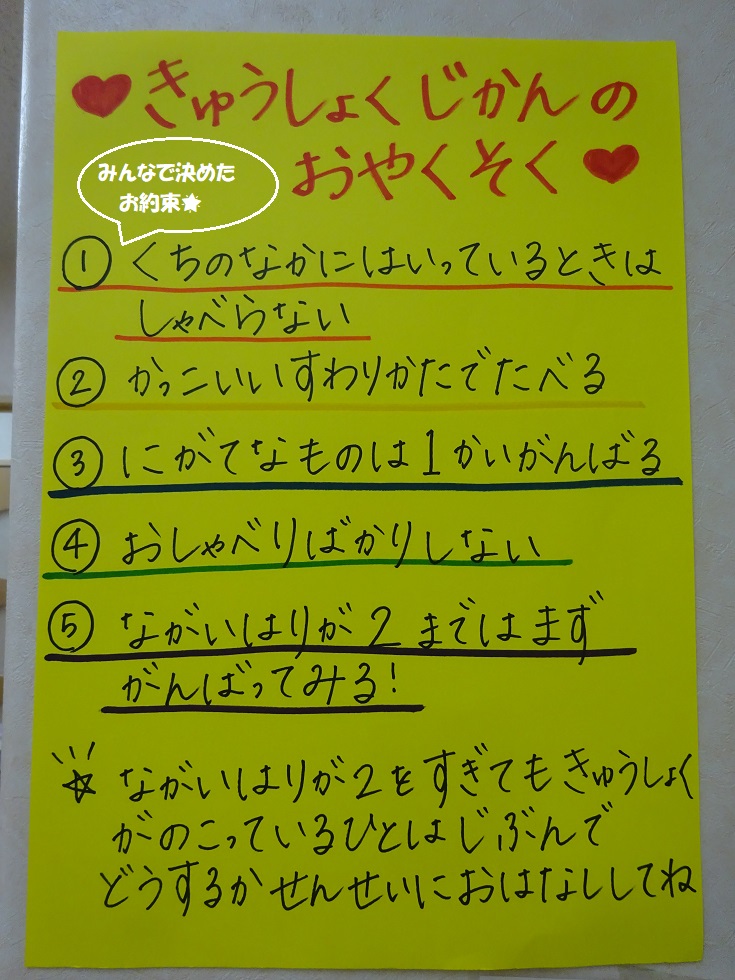 きゅうしょくじかんの
おやくそく
みんなで決めた
お約束★
① くちのなかにはいっているときは
しゃべらない
② かっこいいすわりかたでたべる
③ にがてなものは1かいがんばる
④ おしゃべりばかりしない
⑤ ながいはりが2まではまず
がんばってみる!
☆ ながいはりが2をすぎてもきゅうしょく
がのこっているひとはじぶんで
どうするかせんせいにおはなししてね